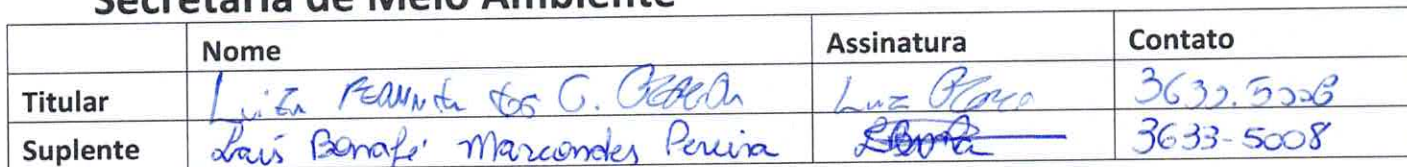 Secretaria de Meio Ambiente
Nome Assinatura Contato
Titular Luiza dos G. Luiza
Suplente Laís Bonafé Marcondes Pereira 3633-5008